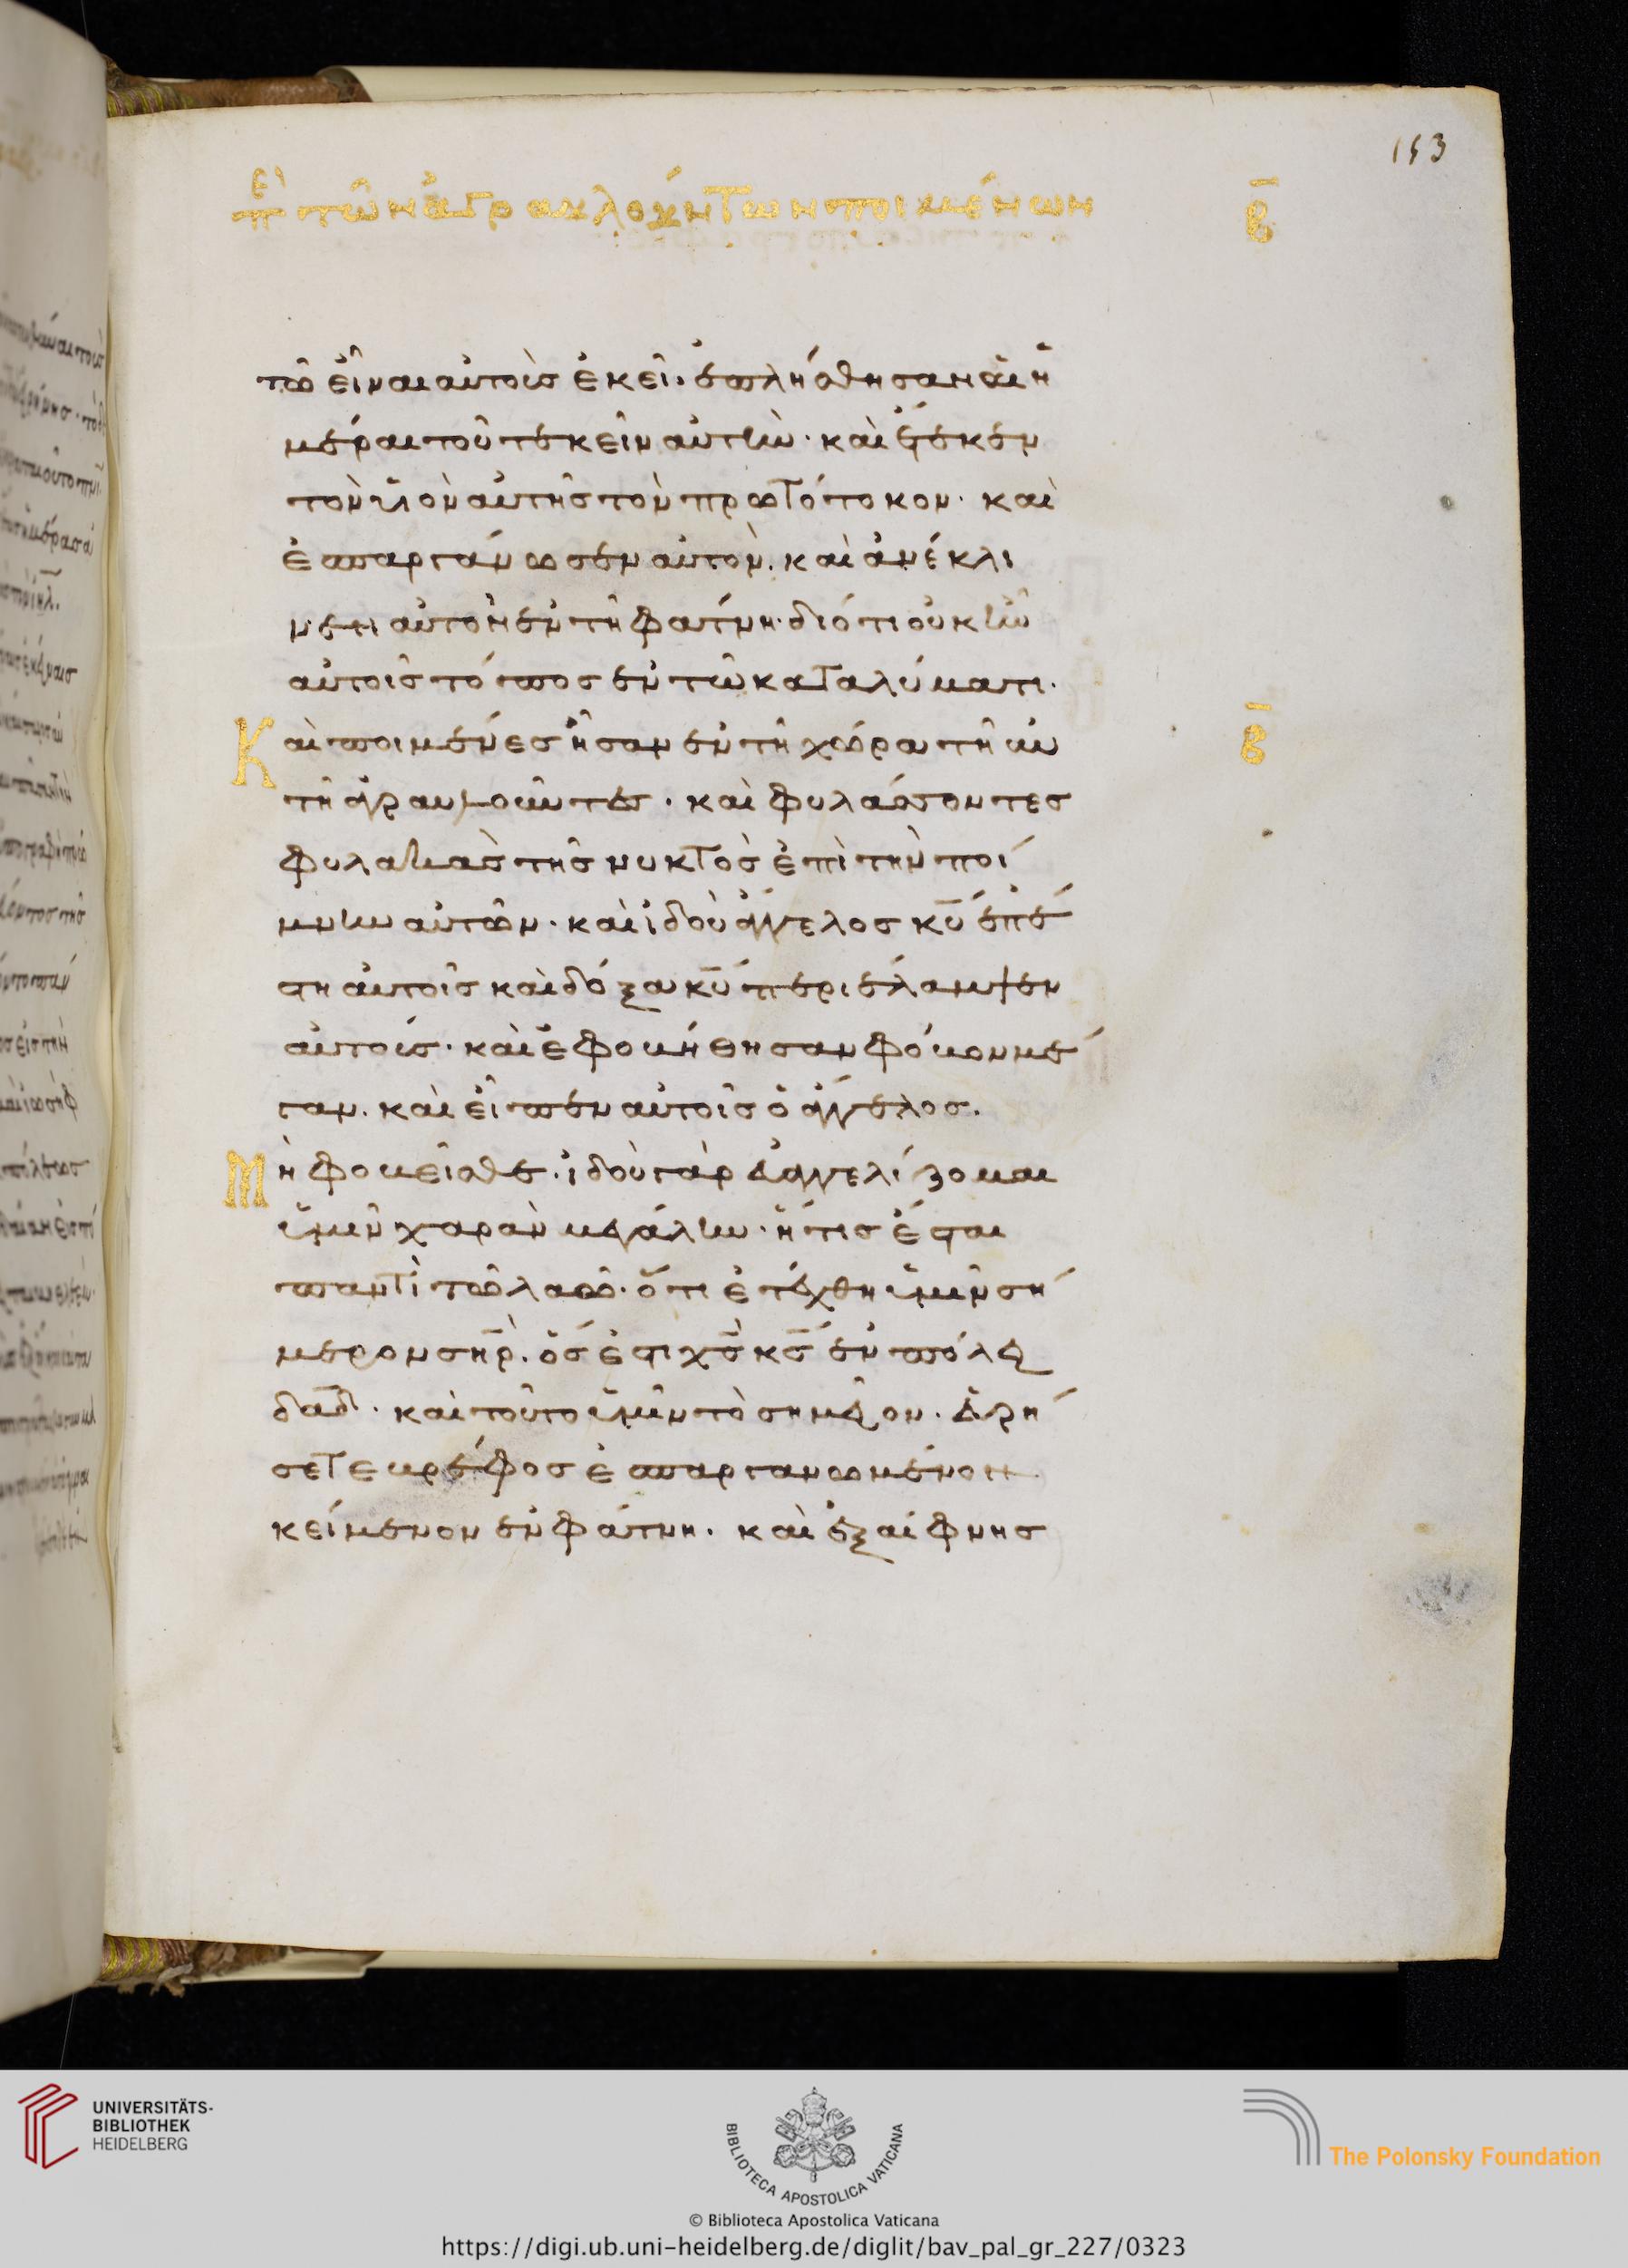 153
πὲ τῶν ἀγραυλούντων ποιμένων β̄
τῶ εἶναι αὐτοὺς ἐκεῖ· ἐπλήσθησαν αἱ ἡ
μέραι τοῦ τεκεῖν αὐτὴν· καὶ ἔτεκεν
τὸν υἱὸν αὐτῆς τὸν πρωτότοκον· καὶ
ἐσπαργάνωσεν αὐτὸν· καὶ ἀνέκλι
νεν αὐτὸν ἐν τῆ φάτνη· διότι οὐκ ἦν
αὐτοῖς τόπος ἐν τῶ καταλύματι·
Καὶ ποιμένες ἦσαν ἐν τῆ χώρα τῆ αὐ β̄
τῆ ἀγραυλοῦντες· καὶ φυλάσσοντες
φυλακὰς τῆς νυκτὸς ἐπὶ τὴν ποί
μνην αὐτῶν· καὶ ἰδοὺ ἄγγελος κ̅υ̅ ἐπέ
στη αὐτοῖς καὶ δόξα κ̅υ̅ περιέλαμψεν
αὐτούς· καὶ ἐφοβήθησαν φόβον μέ
γαν· καὶ εἶπεν αὐτοῖς ὁ ἄγγελος·
Μὴ φοβεῖσθε· ἰδοὺ γὰρ εὐαγγελίζομαι
ὑμῖν χαρὰν μεγάλην· ἥτις ἔσται
παντὶ τῶ λαῶ· ὅτι ἐτέχθη ὑμῖν σή
μερον σ̅η̅ρ̅· ὅς ἐστι χ̅ς̅ κ̅ς̅ ἐν πόλει
δ̅α̅δ̅· καὶ τοῦτο ὑμῖν τὸ σημεῖον· εὑρή
σετε βρέφος ἐσπαργανωμένον
κείμενον ἐν φάτνη· καὶ ἐξαίφνης
UNIVERSITÄTS-
BIBLIOTHEK
HEIDELBERG
BIBLIOTECA APOSTOLICA VATICANA
© Biblioteca Apostolica Vaticana
The Polonsky Foundation
https://digi.ub.uni-heidelberg.de/diglit/bav_pal_gr_227/0323